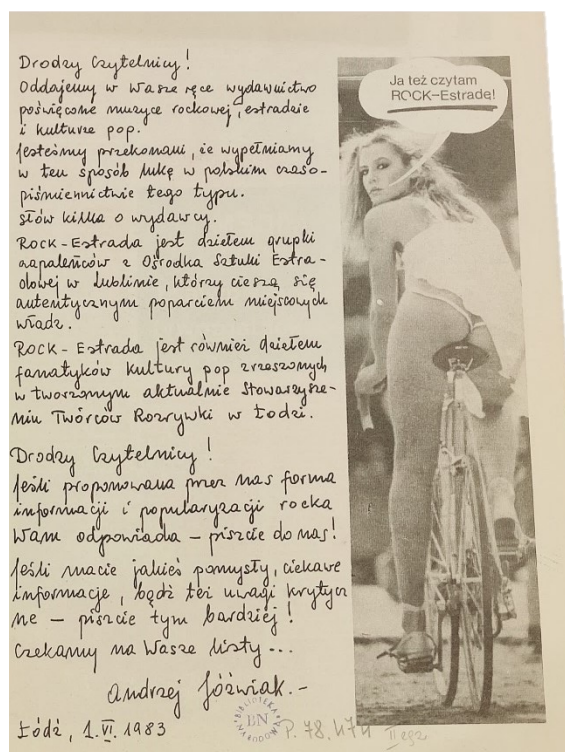 Drodzy Czytelnicy!
Oddajemy w Wasze ręce wydawnictwo
poświęcone muzyce rockowej, estradzie
i kulturze pop.
Jesteśmy przekonani, że wypełniamy
w ten sposób lukę w polskim czaso-
piśmiennictwie tego typu.
Słów kilka o wydawcy.
ROCK-Estrada jest dziełem grupki
zapaleńców z Ośrodka Sztuki Estra-
dowej w Lublinie, którzy cieszą się
autentycznym poparciem miejscowych
władz.
ROCK-Estrada jest również dziełem
fanatyków kultury pop zrzeszonych
w tworzonym aktualnie Stowarzysze-
niu Twórców Rozrywki w Łodzi.
Drodzy Czytelnicy!
Jeśli proponowana przez nas forma
informacji i popularyzacji rocka
Wam odpowiada – piszcie do nas!
Jeśli macie jakieś pomysły, ciekawe
informacje, bądź też uwagi krytycz
ne – piszcie tym bardziej!
Czekamy na Wasze listy...
Andrzej Jóźwiak.-
Łódź, 1.VI.1983
Ja też czytam
ROCK-Estradę!
BIBLIOTEKA NARODOWA
BN
P. 78.474 II egz.